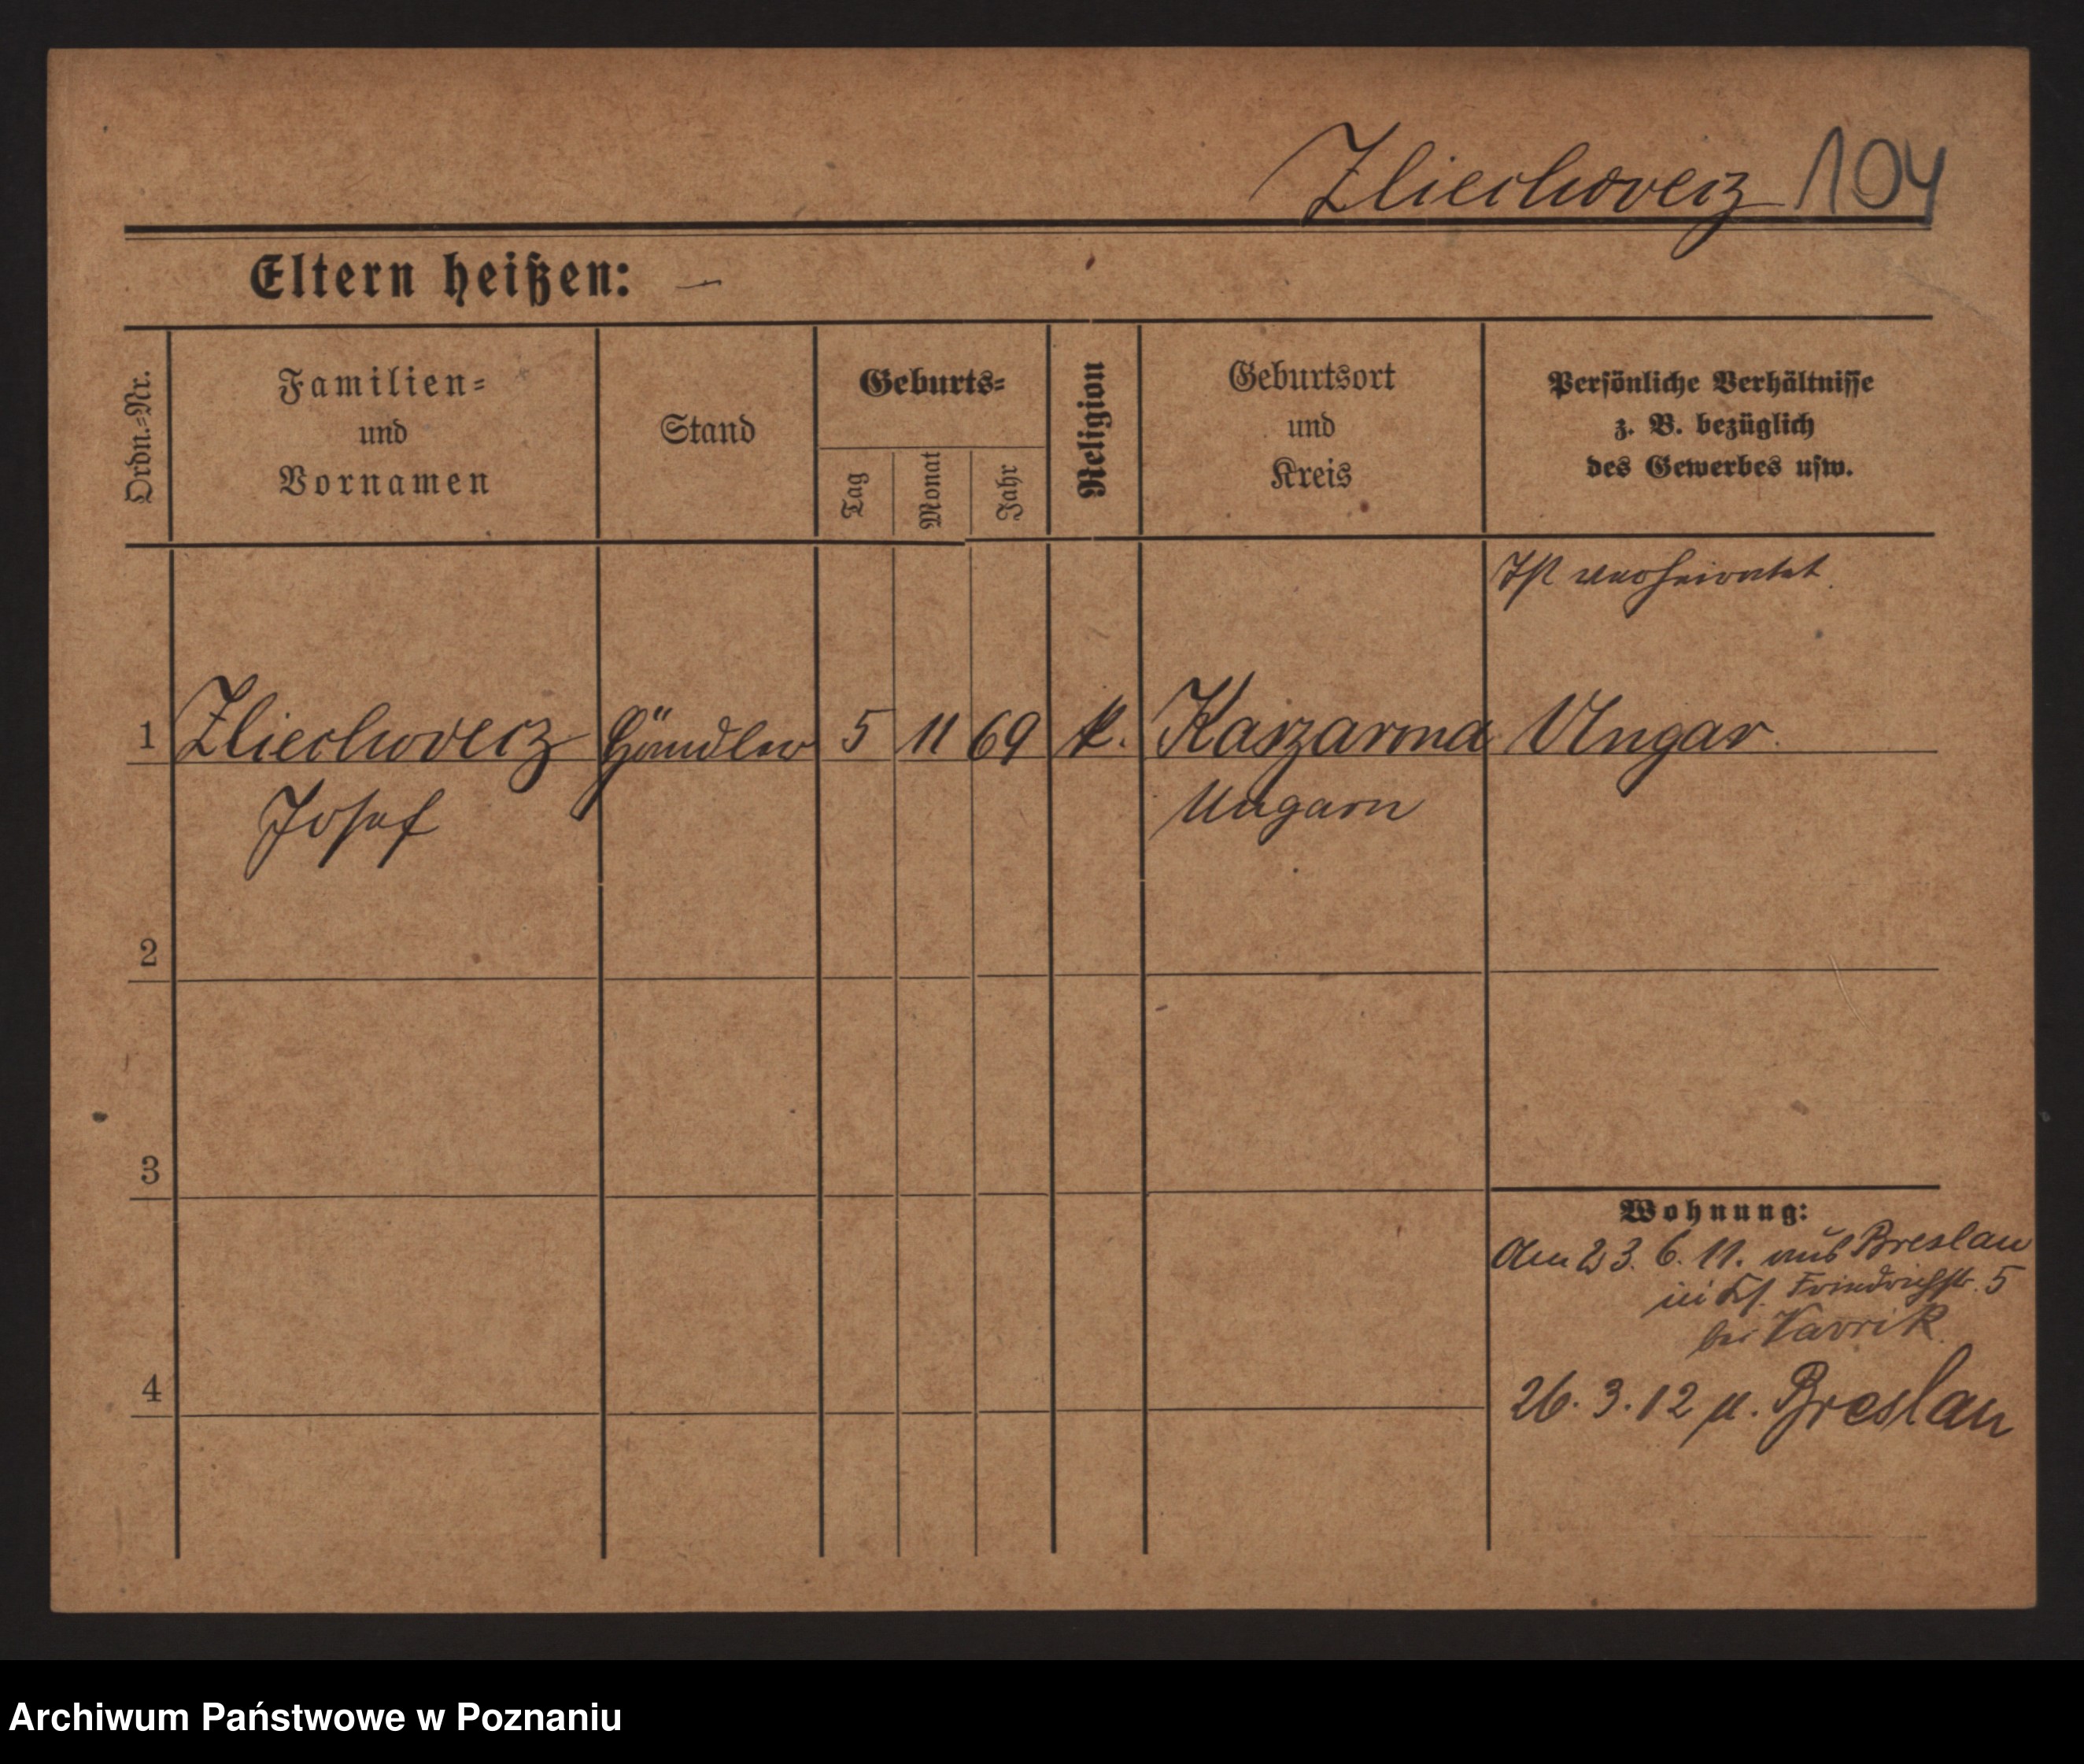 Zliechovecz 104
Eltern heißen: —
Ordn.=Nr.
Familien=
und
Vornamen
Stand
Geburts=
Tag
Monat
Jahr
Religion
Geburtsort
und
Kreis
Persönliche Verhältnisse
z. B. bezüglich
des Gewerbes usw.
Ist verheiratet.
1 Zliechovecz Händler 5 11 69 k. Kaszarma Ungar.
Josef Ungarn
2
3
Wohnung:
Am 23. 6. 11. aus Breslau
in Friedrichstr. 5
bei Vavrik.
4
26. 3. 12 n. Breslau
Archiwum Państwowe w Poznaniu